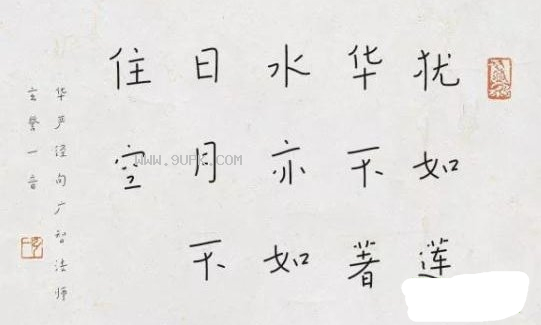 犹如莲
华不著
水亦如
日月不
住空
华严经句广智法师
一音